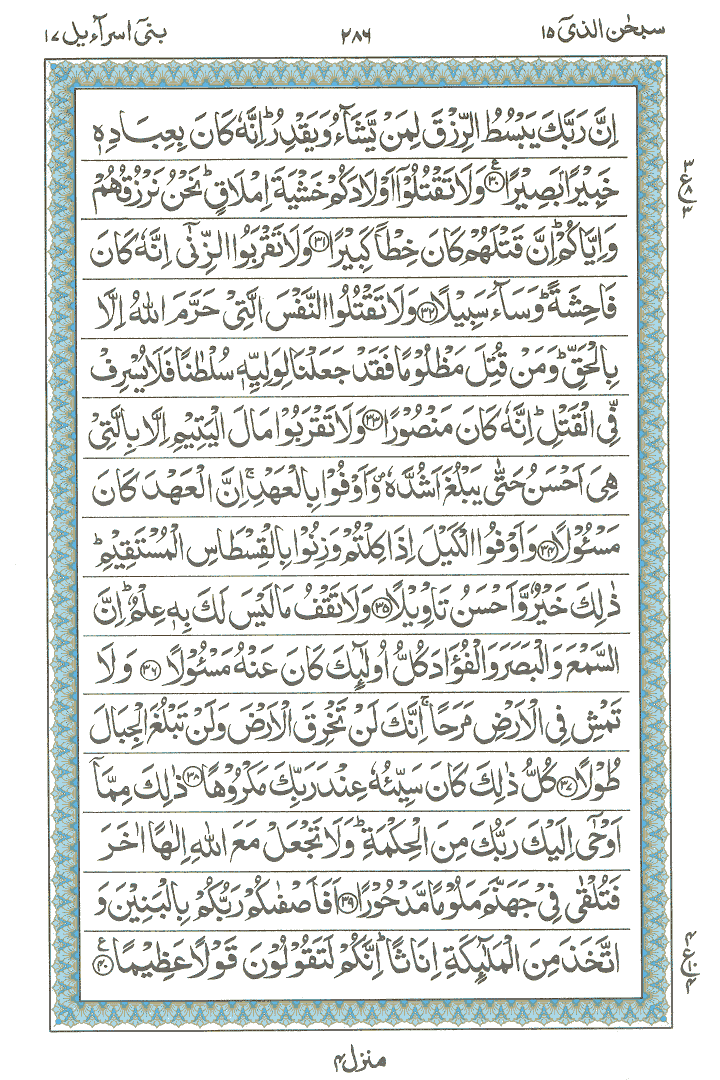 سبحٰن الذیٓ ۱۵
۲۸۶
بنیٓ اسرآءیل ۱۷
اِنَّ رَبَّكَ يَبْسُطُ الرِّزْقَ لِمَنْ يَّشَآءُ وَيَقْدِرُ ؕ اِنَّهٗ كَانَ بِعِبَادِهٖ
خَبِيْرًۢا بَصِيْرًا ؑ ﴿۳۰﴾ وَلَا تَقْتُلُوْۤا اَوْلَادَكُمْ خَشْيَةَ اِمْلَاقٍ ؕ نَحْنُ نَرْزُقُهُمْ
وَاِيَّاكُمْ ؕ اِنَّ قَتْلَهُمْ كَانَ خِطْاً كَبِيْرًا ﴿۳۱﴾ وَلَا تَقْرَبُوا الزِّنٰٓى اِنَّهٗ كَانَ
فَاحِشَةً ؕ وَسَآءَ سَبِيْلًا ﴿۳۲﴾ وَلَا تَقْتُلُوا النَّفْسَ الَّتِيْ حَرَّمَ اللّٰهُ اِلَّا
بِالْحَقِّ ؕ وَمَنْ قُتِلَ مَظْلُوْمًا فَقَدْ جَعَلْنَا لِوَلِيِّهٖ سُلْطٰنًا فَلَا يُسْرِفْ
فِّى الْقَتْلِ ؕ اِنَّهٗ كَانَ مَنْصُوْرًا ﴿۳۳﴾ وَلَا تَقْرَبُوْا مَالَ الْيَتِيْمِ اِلَّا بِالَّتِيْ
هِىَ اَحْسَنُ حَتّٰى يَبْلُغَ اَشُدَّهٗ ۪ وَاَوْفُوْا بِالْعَهْدِ ۚ اِنَّ الْعَهْدَ كَانَ
مَسْـُٔوْلًا ﴿۳۴﴾ وَاَوْفُوا الْكَيْلَ اِذَا كِلْتُمْ وَزِنُوْا بِالْقِسْطَاسِ الْمُسْتَقِيْمِ ؕ
ذٰلِكَ خَيْرٌ وَّاَحْسَنُ تَاْوِيْلًا ﴿۳۵﴾ وَلَا تَقْفُ مَا لَيْسَ لَكَ بِهٖ عِلْمٌ ؕ اِنَّ
السَّمْعَ وَالْبَصَرَ وَالْفُؤَادَ كُلُّ اُولٰٓئِكَ كَانَ عَنْهُ مَسْـُٔوْلًا ﴿۳۶﴾ وَلَا
تَمْشِ فِى الْاَرْضِ مَرَحًا ۚ اِنَّكَ لَنْ تَخْرِقَ الْاَرْضَ وَلَنْ تَبْلُغَ الْجِبَالَ
طُوْلًا ﴿۳۷﴾ كُلُّ ذٰلِكَ كَانَ سَيِّئُهٗ عِنْدَ رَبِّكَ مَكْرُوْهًا ﴿۳۸﴾ ذٰلِكَ مِمَّآ
اَوْحٰٓى اِلَيْكَ رَبُّكَ مِنَ الْحِكْمَةِ ؕ وَلَا تَجْعَلْ مَعَ اللّٰهِ اِلٰهًا اٰخَرَ
فَتُلْقٰى فِيْ جَهَنَّمَ مَلُوْمًا مَّدْحُوْرًا ﴿۳۹﴾ اَفَاَصْفٰىكُمْ رَبُّكُمْ بِالْبَنِيْنَ وَ
اتَّخَذَ مِنَ الْمَلٰٓئِكَةِ اِنَاثًا ؕ اِنَّكُمْ لَتَقُوْلُوْنَ قَوْلًا عَظِيْمًا ؑ ﴿۴۰﴾
۳
ع
۸
۳
۴
ع
۱۰
۴
منزل ۴